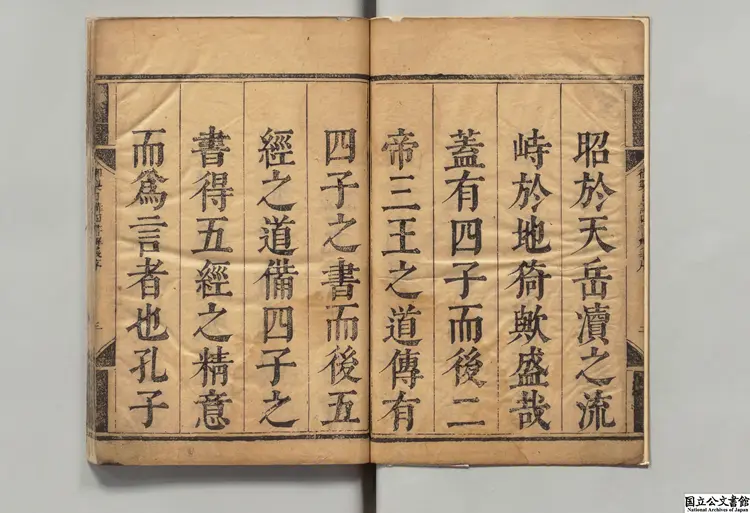 昭於天岳瀆之流
峙於地猗歟盛哉
蓋有四子而後二
帝三王之道傳有
四子之書而後五
經之道備四子之
書得五經之精意
而爲言者也孔子
国立公文書館
National Archives of Japan